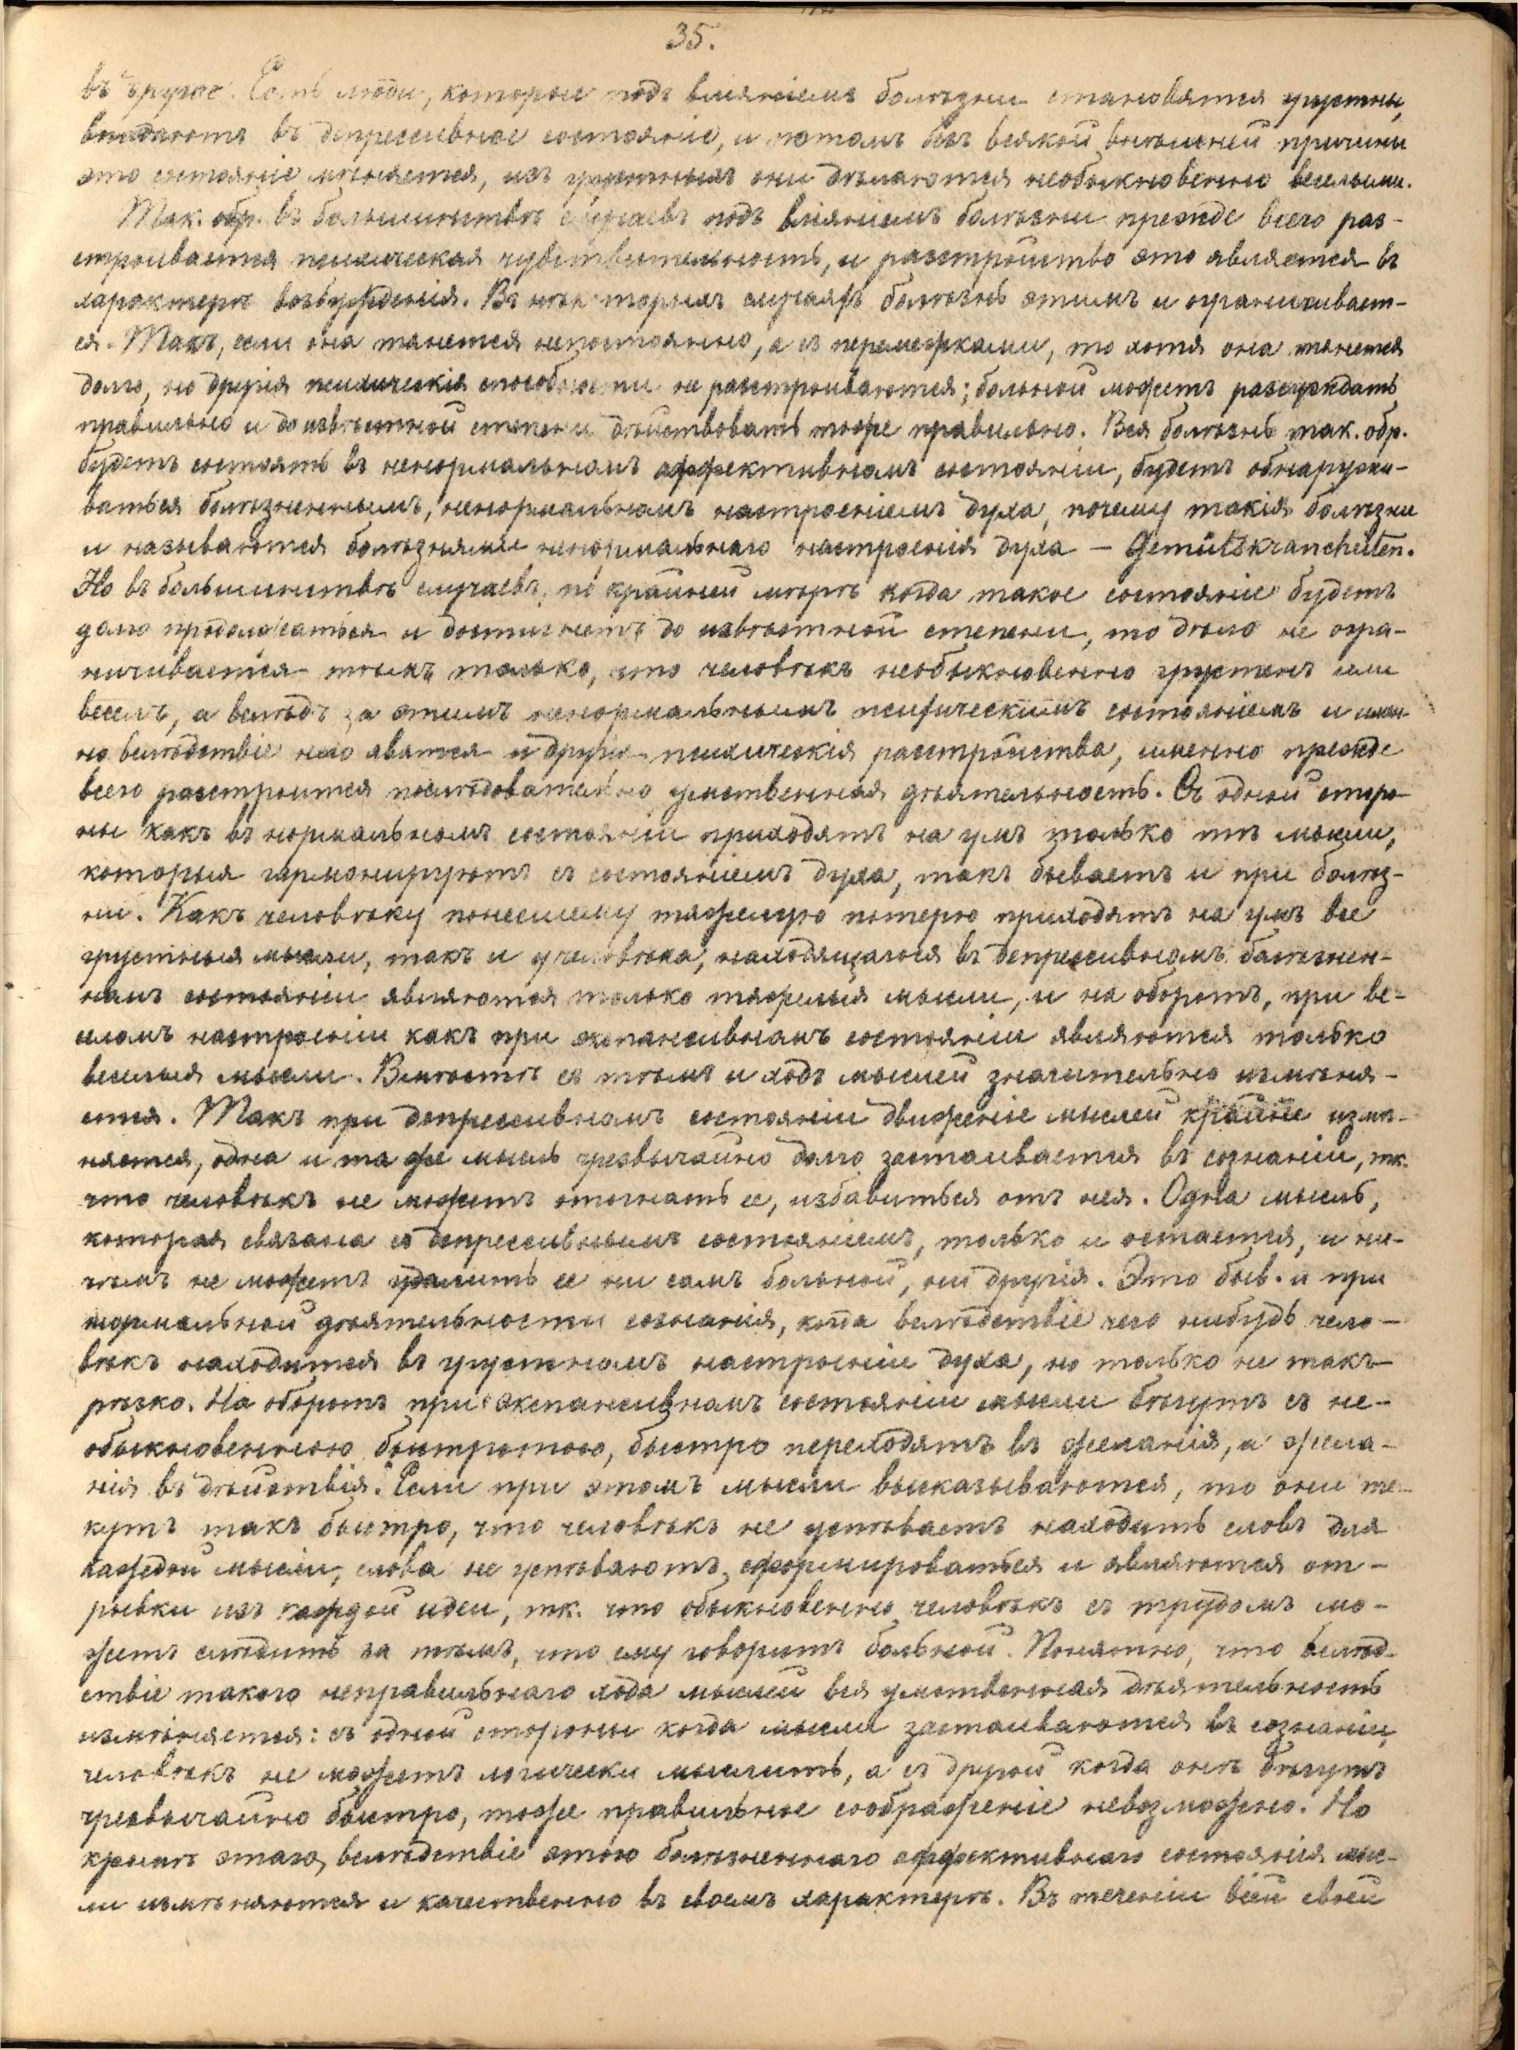 35.
въ другое. Есть люди, которые подъ вліяніемъ болѣзни становятся грустны,
впадаютъ въ депрессивное состояніе, и потомъ безъ всякой внѣшней причины
это состояніе мѣняется, изъ грустныхъ они дѣлаются необыкновенно веселыми.
Так. обр. въ большинствѣ случаевъ подъ вліяніемъ болѣзни прежде всего раз-
строивается психическая чувствительность, и разстройство это является въ
характерѣ возбужденія. Въ нѣкоторыхъ случаяхъ болѣзнь этимъ и ограничивает-
ся. Такъ, если она тянется непостоянно, а съ перемежками, то хотя она тянется
долго, но другія психическія способности не разстроиваются; больной можетъ разсуждать
правильно и до извѣстной степени дѣйствовать тоже правильно. Вся болѣзнь так. обр.
будетъ состоять въ ненормальномъ аффективномъ состояніи, будетъ обнаружи-
ваться болѣзненнымъ, ненормальнымъ настроеніемъ духа, почему такія болѣзни
и называются болѣзнями ненормальнаго настроенія духа — Gemütskrancheiten.
Но въ большинствѣ случаевъ, по крайней мѣрѣ когда такое состояніе будетъ
долго продолжаться и достигнетъ до извѣстной степени, то дѣло не огра-
ничивается тѣмъ только, что человѣкъ необыкновенно грустенъ или
веселъ, а вслѣдъ за этимъ ненормальнымъ психическимъ состояніемъ и имен-
но вслѣдствіе него явятся и другія психическія разстройства, именно прежде
всего разстроится послѣдовательно умственная дѣятельность. Съ одной сторо-
ны какъ въ нормальномъ состояніи приходятъ на умъ только тѣ мысли,
которыя гармонируютъ съ состояніемъ духа, такъ бываетъ и при болѣз-
ни. Какъ человѣку понесшему тяжелую потерю приходятъ на умъ все
грустныя мысли, такъ и у человѣка, находящагося въ депрессивномъ болѣзнен-
номъ состояніи являются только тяжелыя мысли, и на оборотъ, при ве-
селомъ настроеніи какъ при экспансивномъ состояніи являются только
веселыя мысли. Вмѣстѣ съ тѣмъ и ходъ мыслей значительно измѣня-
ется. Такъ при депрессивномъ состояніи движеніе мыслей крайне измѣ-
няется, одна и та же мысль чрезвычайно долго застаивается въ сознаніи, тк.
что человѣкъ не можетъ отогнать ее, избавиться отъ нея. Одна мысль,
которая связана съ депрессивнымъ состояніемъ, только и остается, и ни-
чѣмъ не можетъ удалить ее ни самъ больной, ни другія. Это быв. и при
нормальной дѣятельности сознанія, когда вслѣдствіе чего нибудь чело-
вѣкъ находится въ грустномъ настроеніи духа, но только не такъ
рѣзко. На оборотъ при экспансивномъ состояніи мысли бѣгутъ съ не-
обыкновенною быстротою, быстро переходятъ въ желанія, а жела-
нія въ дѣйствія. Если при этомъ мысли высказываются, то они те-
кутъ такъ быстро, что человѣкъ не успѣваетъ находить словъ для
каждой мысли, слова не успѣваютъ сформироваться и являются от-
рывки изъ каждой идеи, тк. что обыкновенно человѣкъ съ трудомъ мо-
жетъ слѣдить за тѣмъ, что ему говоритъ больной. Понятно, что вслѣд-
ствіе такого неправильнаго хода мыслей вся умственная дѣятельность
измѣняется: съ одной стороны когда мысли застаиваются въ сознаніи,
человѣкъ не можетъ логически мыслить, а съ другой когда онѣ бѣгутъ
чрезвычайно быстро, тоже правильное соображеніе невозможно. Но
кромѣ этаго, вслѣдствіе этого болѣзненнаго аффективнаго состоянія мыс-
ли измѣняются и качественно въ своемъ характерѣ. Въ теченіи всей своей